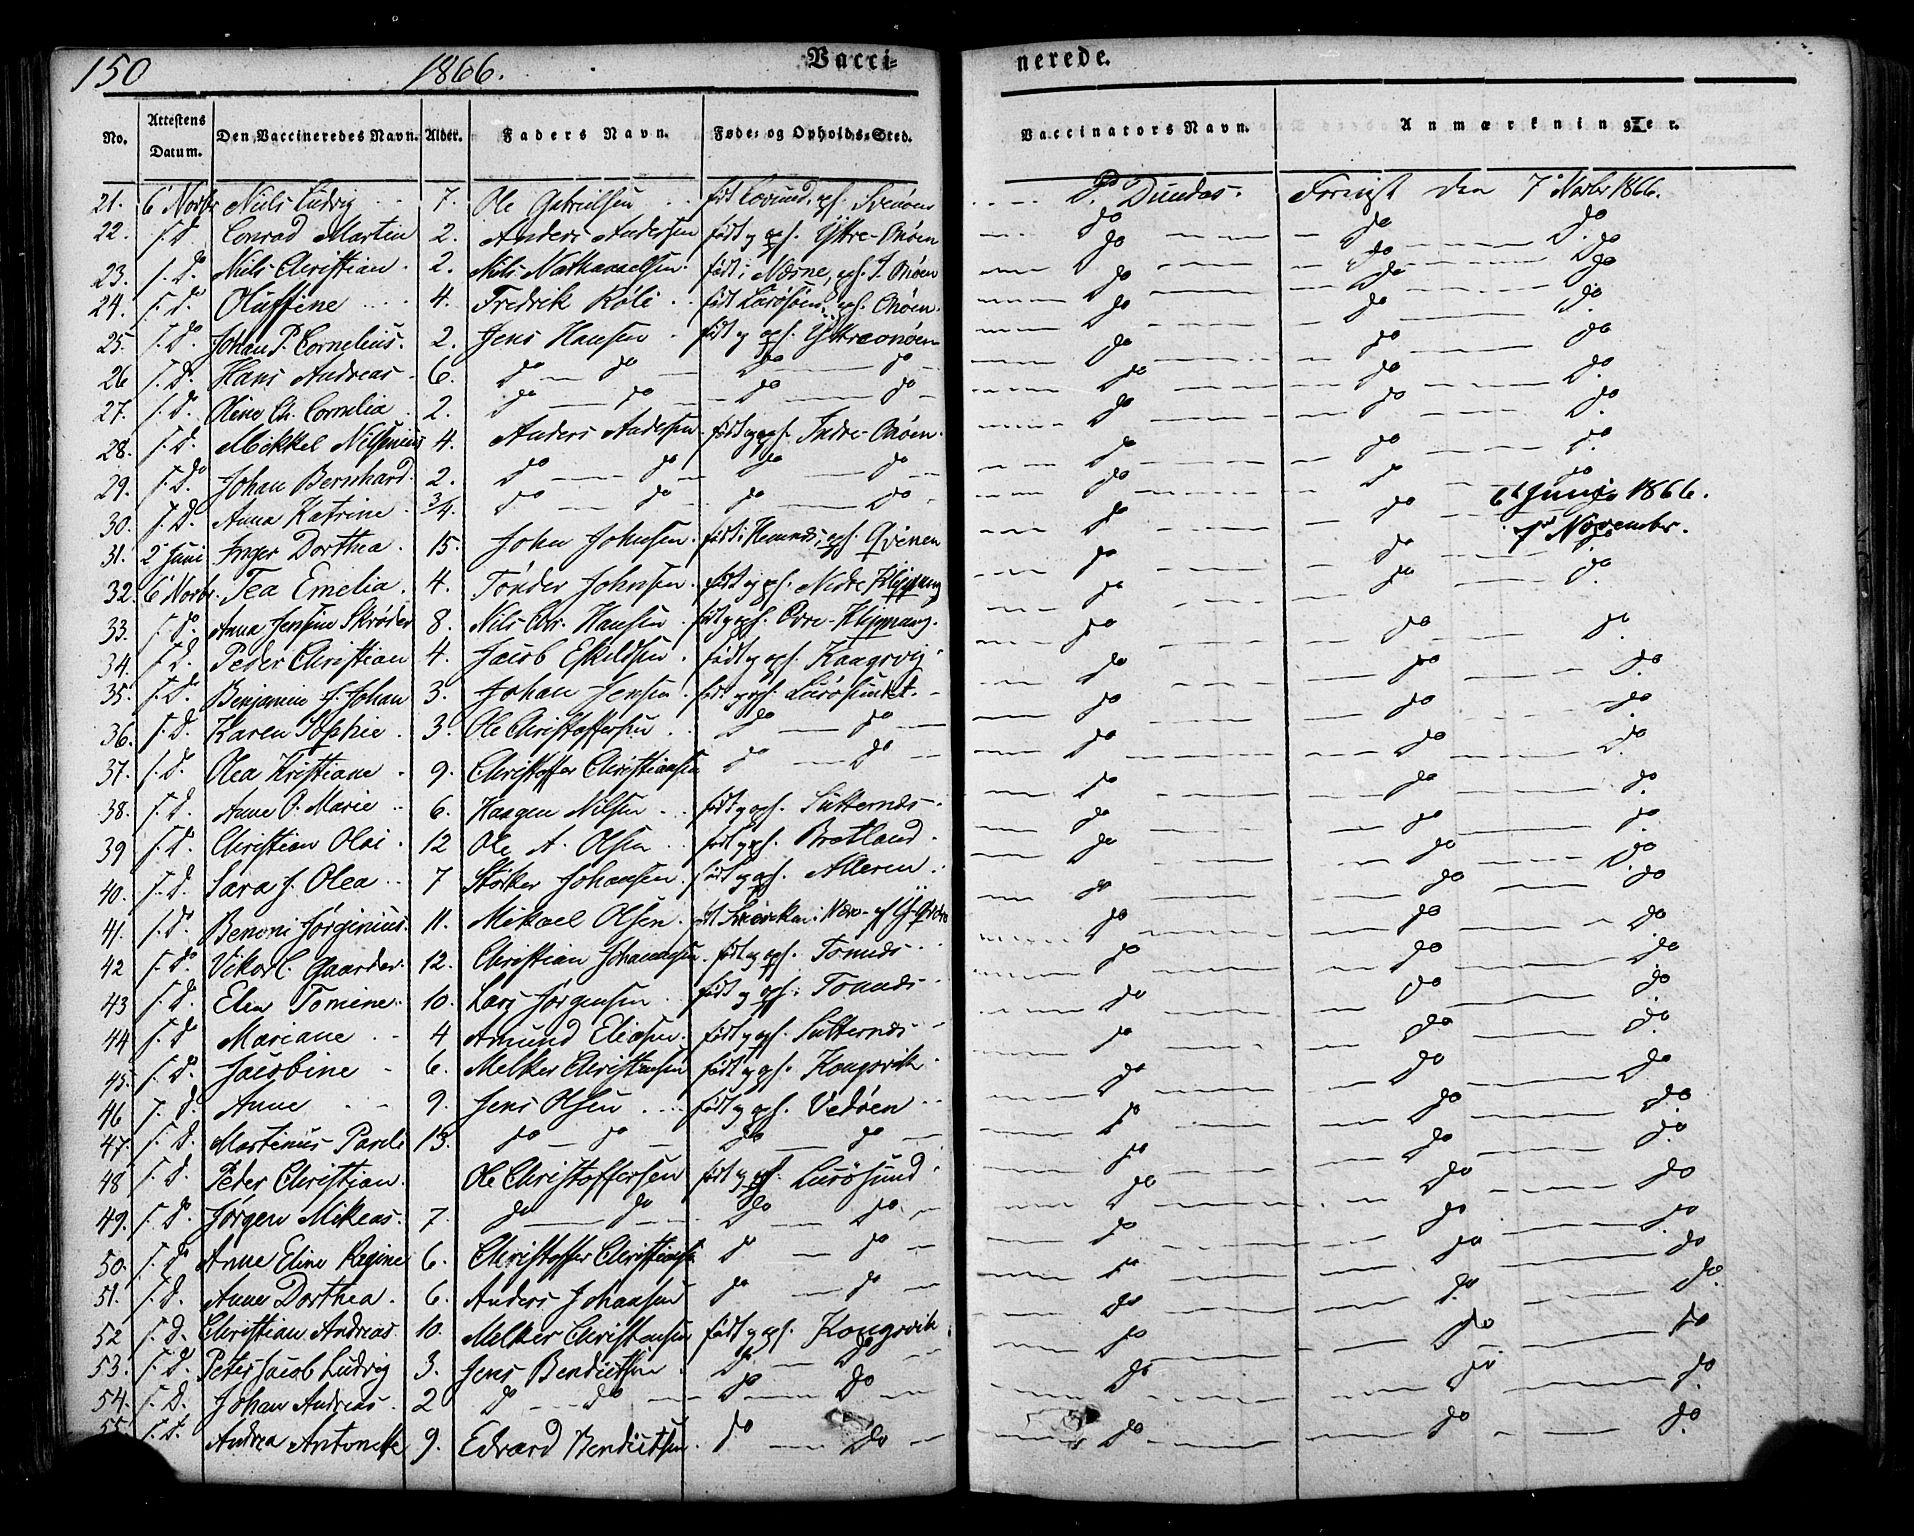 150 1866. Vacci- nerede.
No. Attestens Datum. Den Vaccineredes Navn. Alder. Faders Navn. Føde- og Opholds-Sted. Vaccinators Navn. Anmærkninger.
21. 6' Novbr Niels Ludvig 7. Ole Gabrielsen født Lovund, oph. Dundas. Forevist den 7' Novbr 1866.
22. f. D. Conrad Martin 2. Anders Andersen født og oph. Yttre-Onøen do do do
23. f. Do Niels Christian. 2. Niels Nathanaelsen. født i Næsne, oph. I. Onøen do do do
24. f. Do Oluffine 4. Fredrik Røli født Lurøsöen, oph. Onøen. do do do
25. f. Do Johan P. Cornelius. 2. Jens Hansen født og oph. Yttreonøen do do do
26 f. D. Hans Andreas 6. do do do do do do do
27. f. D. Oline Ch. Cornelia 2. do do do do do do do
28. f. D. Mekkel Nilsenius 4. Anders Andersen. født og oph. Indre-Onøen. do do do
29. f. Do Johan Bernhard. 2. do do do do do do do
30. f. D. Anna Katrine. 3/4. do do do do do do
31. 2' Juni Inger Dorthea. 15. John Johnsen. født i Hemnæs, oph. Qvinen do do 6' Juni 1866.
32. 6' Novbr. Tea Emelia. 4. Tönder Johnsen. født og oph. Nedre Klippang do do 7' November.
33. f. Do. Anna Jensine Skrøder 8. Nils Chr. Hansen. født og oph. Øvre-Klippang. do do do
34. f. D. Peder Christian 4. Jacob Eskildsen. født og oph. Kongsvig. do do do
35. f. D. Benjamin J. Johan 3. Johan Jensen. født og oph. Lurøsundet. do do do
36. f. D. Karen Sophie. 3. Ole Christoffersen do do do do do
37. f. D. Olea Kristiane 9. Christoffer Christiansen do do do do do
38. f. D. Anne O. Marie 6. Haagen Nilsen født og oph. Sutternæs. do do do
39 f. D. Christian Olai. 12 Ole A. Olsen født og oph. Bratland. do do do
40. f. D. Sara J. Olea 7 Støtker Johansen. født og oph. Alteren. do do do
41. f. D. Benoni Jørginius. 11. Mikael Olsen. do do do
42 f. Do Vikor C. Gaarder. 12. Christian Johannesen. født og oph. Tonnæs do do do
43 f. D. Elen Tomine. 10. Lars Jørgensen født og oph. Tonnæs. do do do
44 f. D Mariane 4 Amund Eliasen. født og oph. Sutternæs do do do
45. f. D. Jacobine 6. Melker Christensen født og oph. Kongsvik. do do do
46 f. D. Anne 9. Jens Olsen født og oph. Vedøen do do do
47. f. D. Martinus Pareli 13. do do do do do do do
48 f. D. Peder Christian. Ole Christoffersen født og oph. Lurösund do do do
49. f. D. Jørgen Mikeas. 7. do do do do do do do
50. f. D Anne Eline Regine 6. Christoffer Christiansen do do do do do
51. f. D. Anne Dorthea. 6. Anders Johansen do do do do do
52 f. D. Christian Andreas. 10. Melker Christensen født og oph. Kongsvik. do do do
53. f. D. Peter Jacob Ludvig 3. Jens Bendictsen do do do do do
54. f. D. Johan Andreas. 2 do do do do do do do
55 f. D. Andrea Antonette 9. Edvard Bendictsen. do do do do do